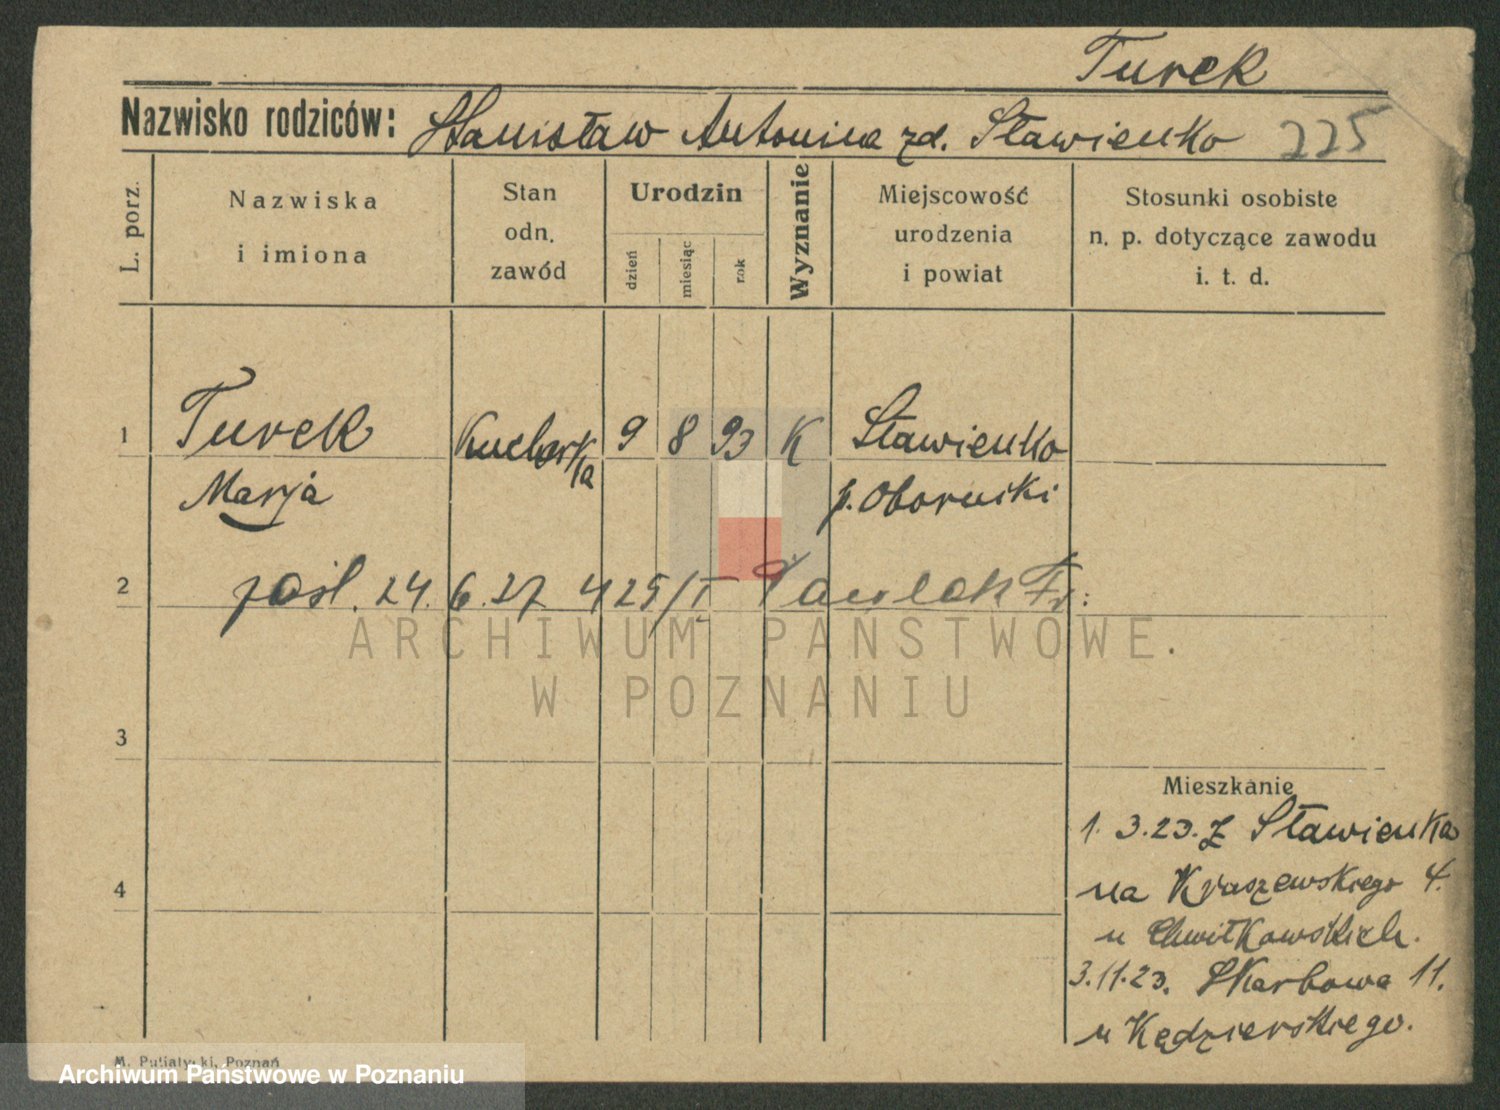 Turek
Nazwisko rodziców: Stanisław Antonina zd. Sławienko 225
L. porz.
Nazwiska
i imiona
Stan
odn.
zawód
Urodzin
dzień
miesiąc
rok
Wyznanie
Miejscowość
urodzenia
i powiat
Stosunki osobiste
n. p. dotyczące zawodu
i. t. d.
1 Turek Kucharka 9 8 93 K Sławienko
Marja p. Obornicki
2 pośl. 24.6.27 425/I Pawlak Fr.
3
4
Mieszkanie
1.3.23. z Sławienka
na Kraszewskiego 4.
u Chwiłkowskich.
3.11.23. Skarbowa 11.
u Kędzierskiego.
M. Putiatycki, Poznań
ARCHIWUM PAŃSTWOWE
W POZNANIU
Archiwum Państwowe w Poznaniu